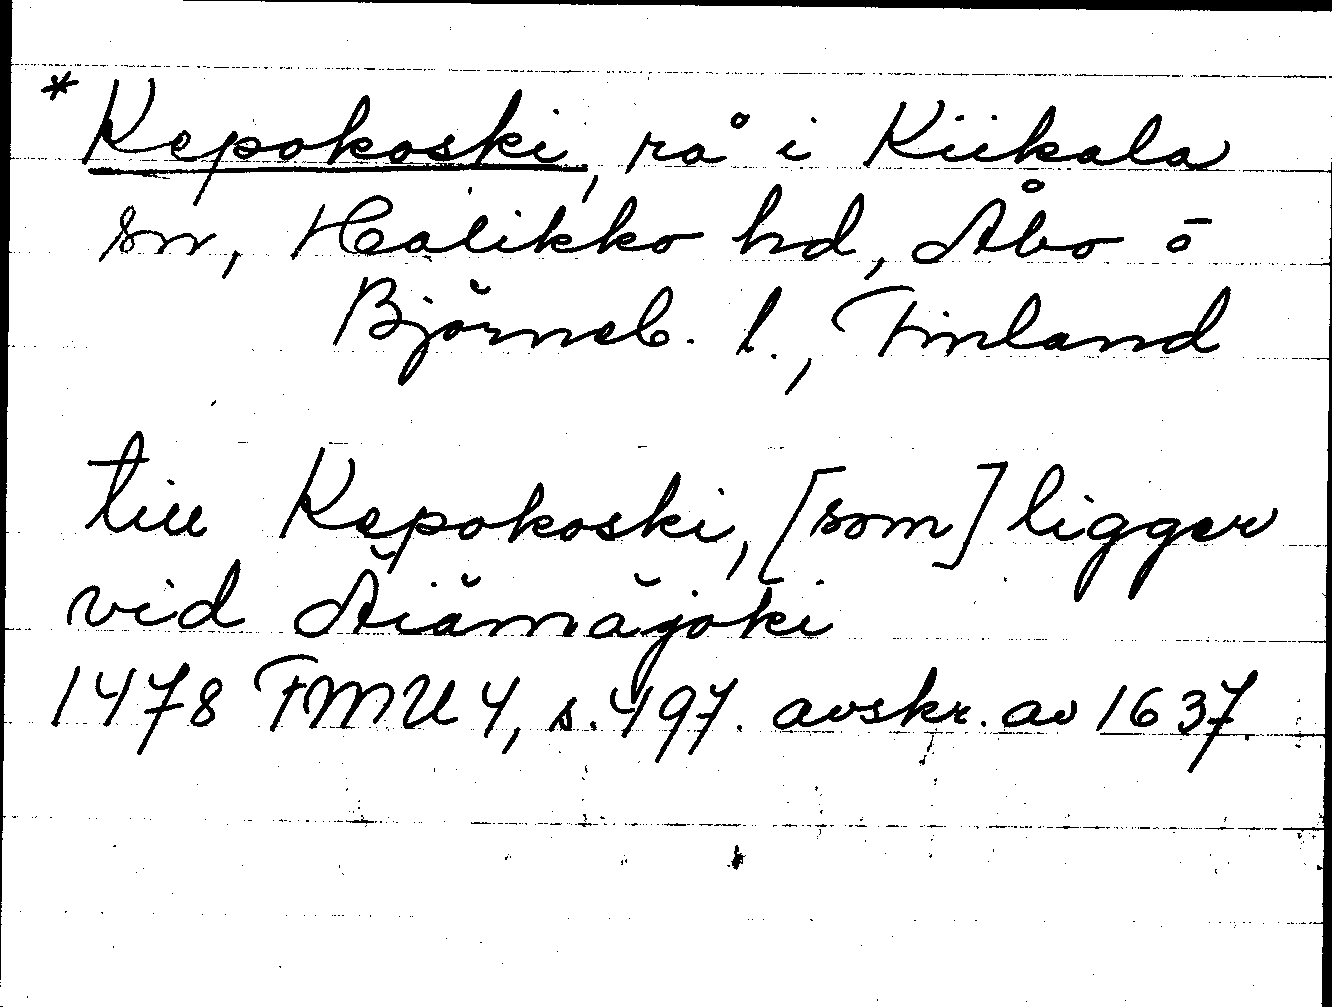 *Kepokoski, rå i Kiikala
sn, Halikko hd, Åbo o
Björneb. l., Finland
till Kepokoski, [som] ligger
vid Äiämäjoki
1478 FMU 4, s. 497. avskr. av 1637.